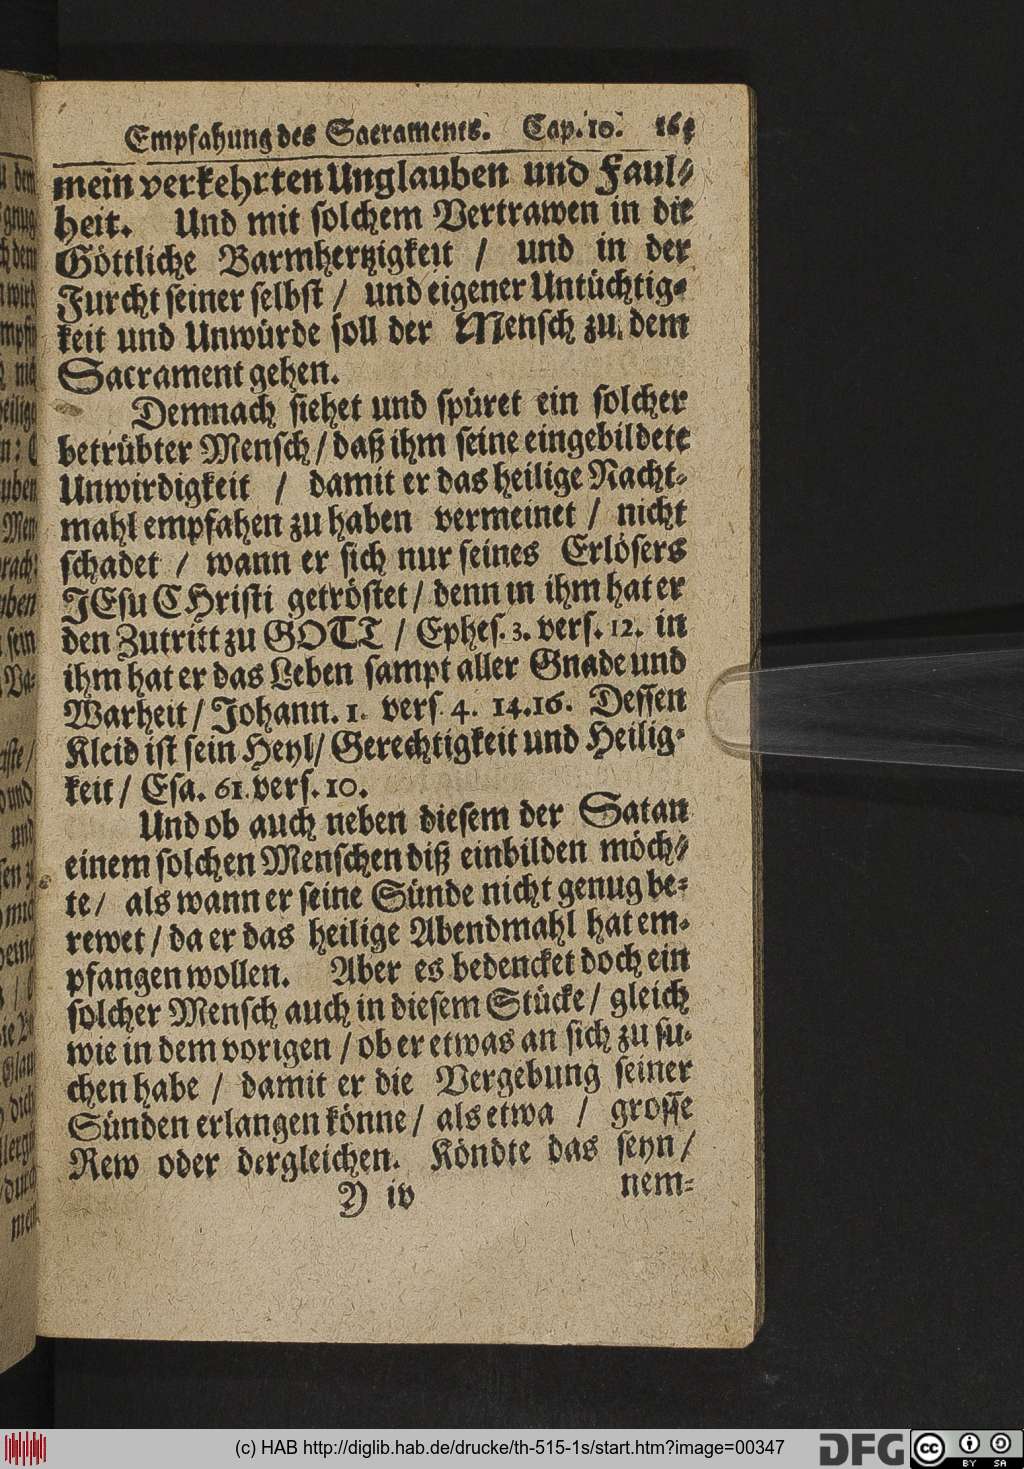 Empfahung des Sacraments. Cap. 10.
mein verkehrten Unglauben und Faul-
heit. Und mit solchem Vertrawen in die
Göttliche Barmhertzigkeit / und in der
Furcht seiner selbst / und eigener Untüchtig-
keit und Unwürde soll der Mensch zu dem
Sacrament gehen.
Demnach siehet und spüret ein solcher
betrübter Mensch / daß ihm seine eingebildete
Unwirdigkeit / damit er das heilige Nacht-
mahl empfahen zu haben vermeinet / nicht
schadet / wann er sich nur seines Erlösers
JEsu CHristi getröstet / denn in ihm hat er
den Zutritt zu GOTT / Ephes. 3. vers. 12. in
ihm hat er das Leben sampt aller Gnade und
Warheit / Johann. 1. vers. 4. 14. 16. Dessen
Kleid ist sein Heyl / Gerechtigkeit und Heilig-
keit / Esa. 61. vers. 10.
Und ob auch neben diesem der Satan
einem solchen Menschen diß einbilden möch-
te / als wann er seine Sünde nicht genug be-
rewet / da er das heilige Abendmahl hat em-
pfangen wollen. Aber es bedencket doch ein
solcher Mensch auch in diesem Stücke / gleich
wie in dem vorigen / ob er etwas an sich zu su-
chen habe / damit er die Vergebung seiner
Sünden erlangen könne / als etwa / grosse
Rew oder dergleichen. Köndte das seyn /
Y iv nem-
(c) HAB http://diglib.hab.de/drucke/th-515-1s/start.htm?image=00347
DFG
cc BY SA